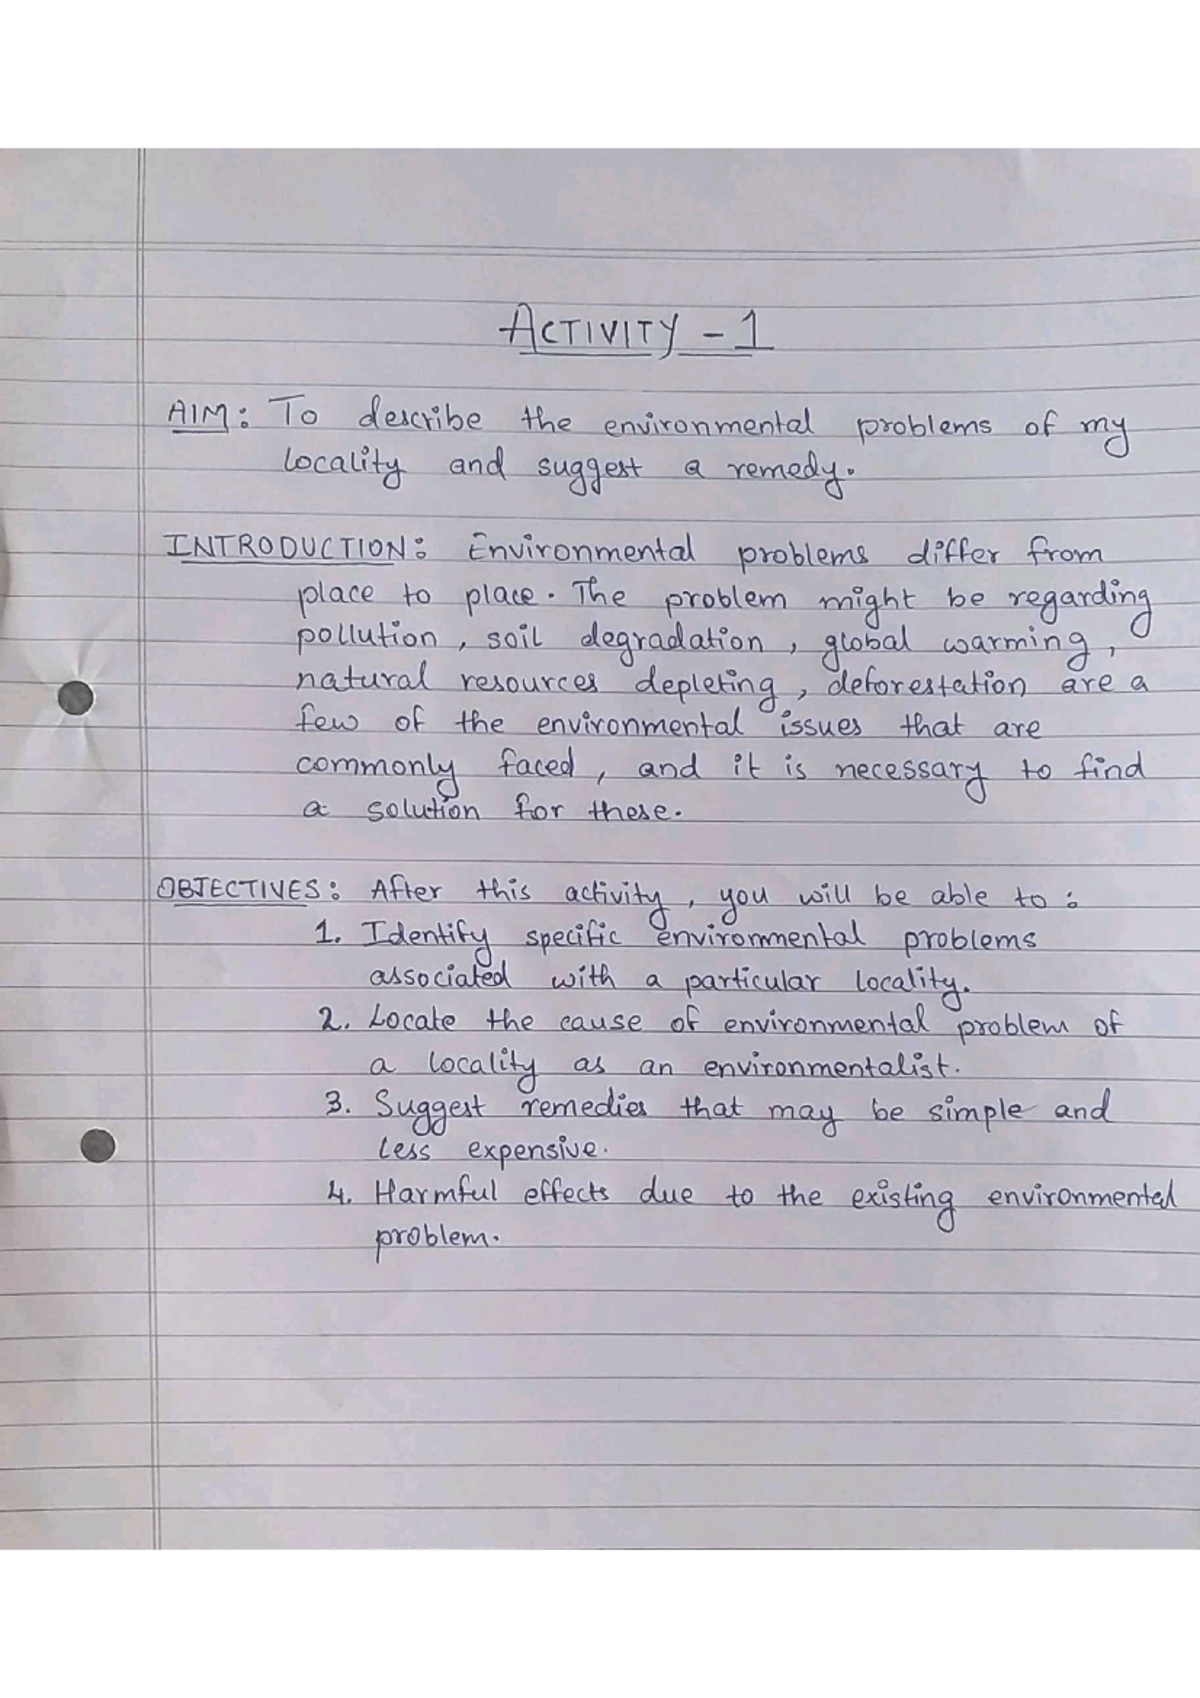 ACTIVITY - 1
AIM: To describe the environmental problems of my
locality and suggest a remedy.
INTRODUCTION: Environmental problems differ from
place to place. The problem might be regarding
pollution, soil degradation, global warming,
natural resources depleting, deforestation are a
few of the environmental issues that are
commonly faced, and it is necessary to find
a solution for these.
OBJECTIVES: After this activity, you will be able to:
1. Identify specific environmental problems
associated with a particular locality.
2. Locate the cause of environmental problem of
a locality as an environmentalist.
3. Suggest remedies that may be simple and
less expensive.
4. Harmful effects due to the existing environmental
problem.